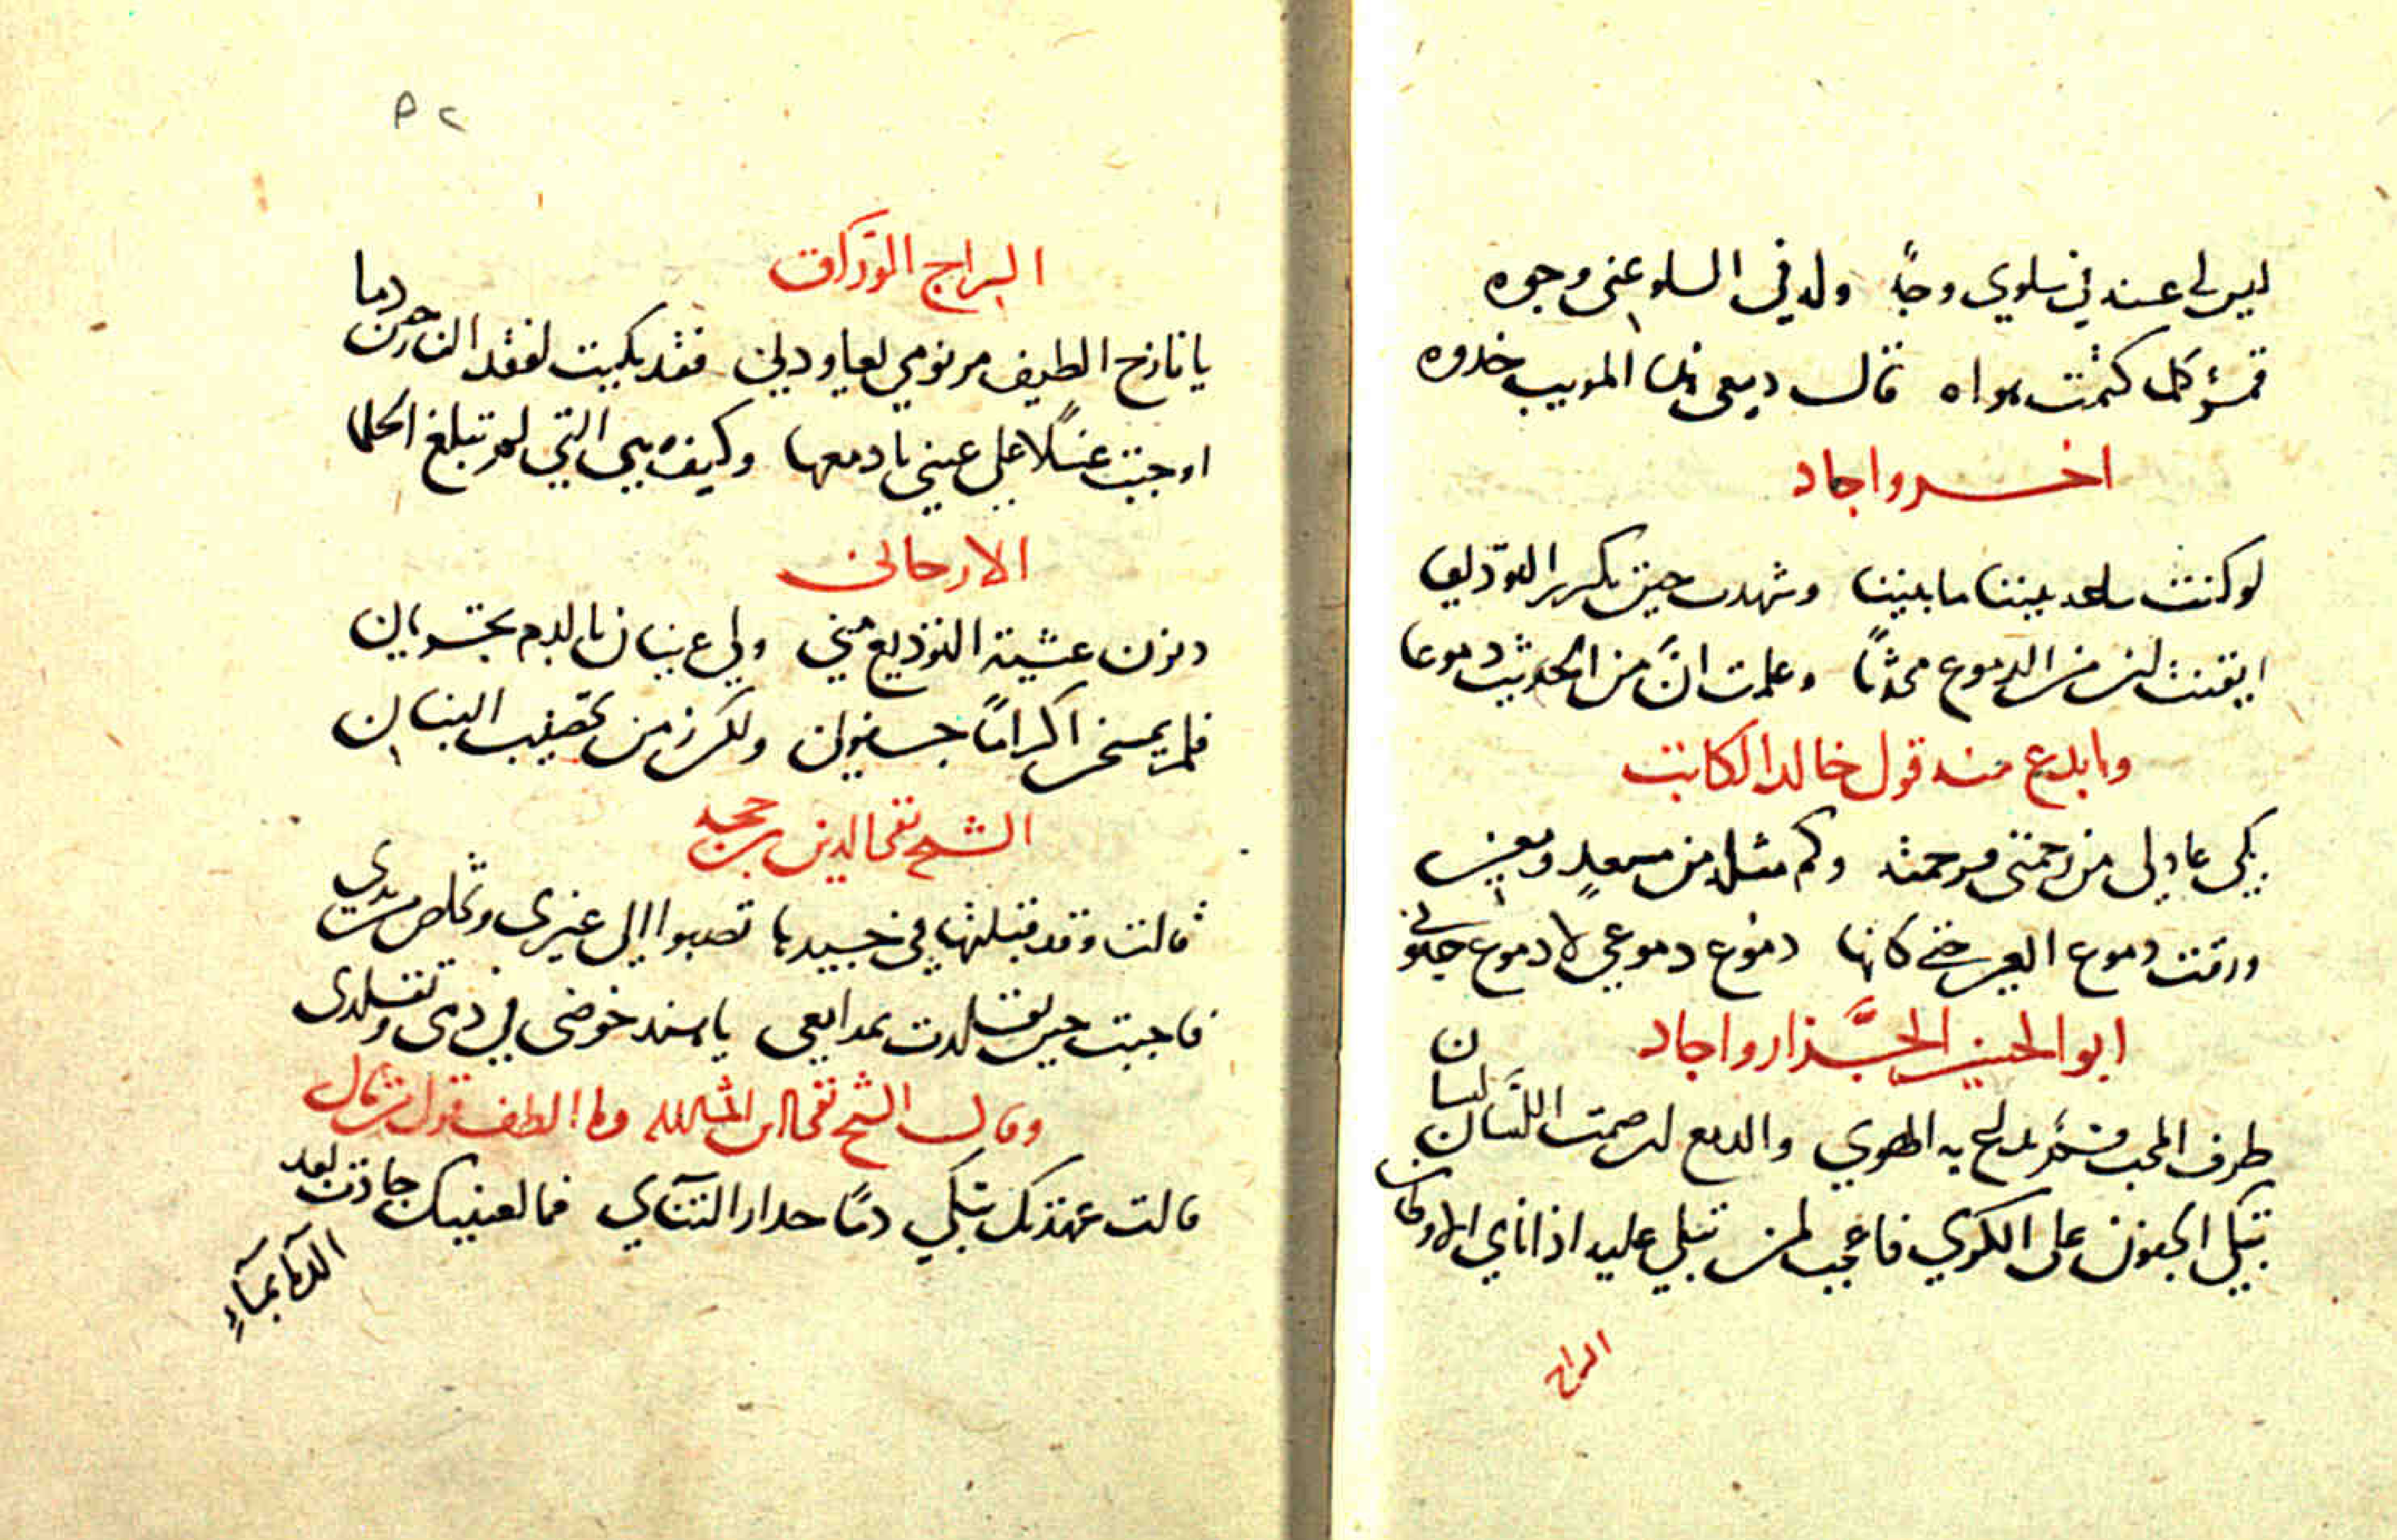 ليس لي عند في سلوي وجهً وله في السلو عني وجوه
كل كتمت هواه قال دمعي المريب خذوه
اخر واجاد
لو كنت ساعة بيننا ما بيننا وشهدت حين نكرر التوديعا
ايقنت ان من الدموع محدثاً وعلمت انَّ من الحديث دموعا
وابدع منه قول خالد الكاتب
بكى عاذلي من رحمتي فرحمته وكم مثله من مسعدٍ ومعين
ورقت دموع العين حتى كانها دموع دموعي لا دموع جفوني
ابو الحسين الجَّزار واجاد
طرف المحب فم يذيع به الهوي والدمع ان صمت اللسان لسان
تبكي الجفون على الكري فاعجب لمن تبكي عليه اذا ناي الاوطان
السراج
٥٢
السراج الورّاق
يا نازح الطيف من نومي يعاودني فقد بكيت لفقد النازحين دما
اوجبت غسلاً على عيني بادمعها وكيف وهي التي لم تبلغ الحلما
الارجاني
دنون عشية التوديع مني ولي عينان بالدم تجريان
فلم يمسحن اكراماً جفوني ولكن رمن تخضيب البنان
الشيخ تقي الدين بن حجة
قالت وقد قبلتها في جيدها تصبوا الي غيري وتخلص من يدي
فاجبت حين تقلدت بمدامعي يا هند خوضي في دمي وتقلدي
وقال الشيخ تقي الدين وما الطف قول من قال
قالت عهدتك تبكي دمًا حذار التنآي فما لعينيك جادت بعد
الدمآ بمآءٍ